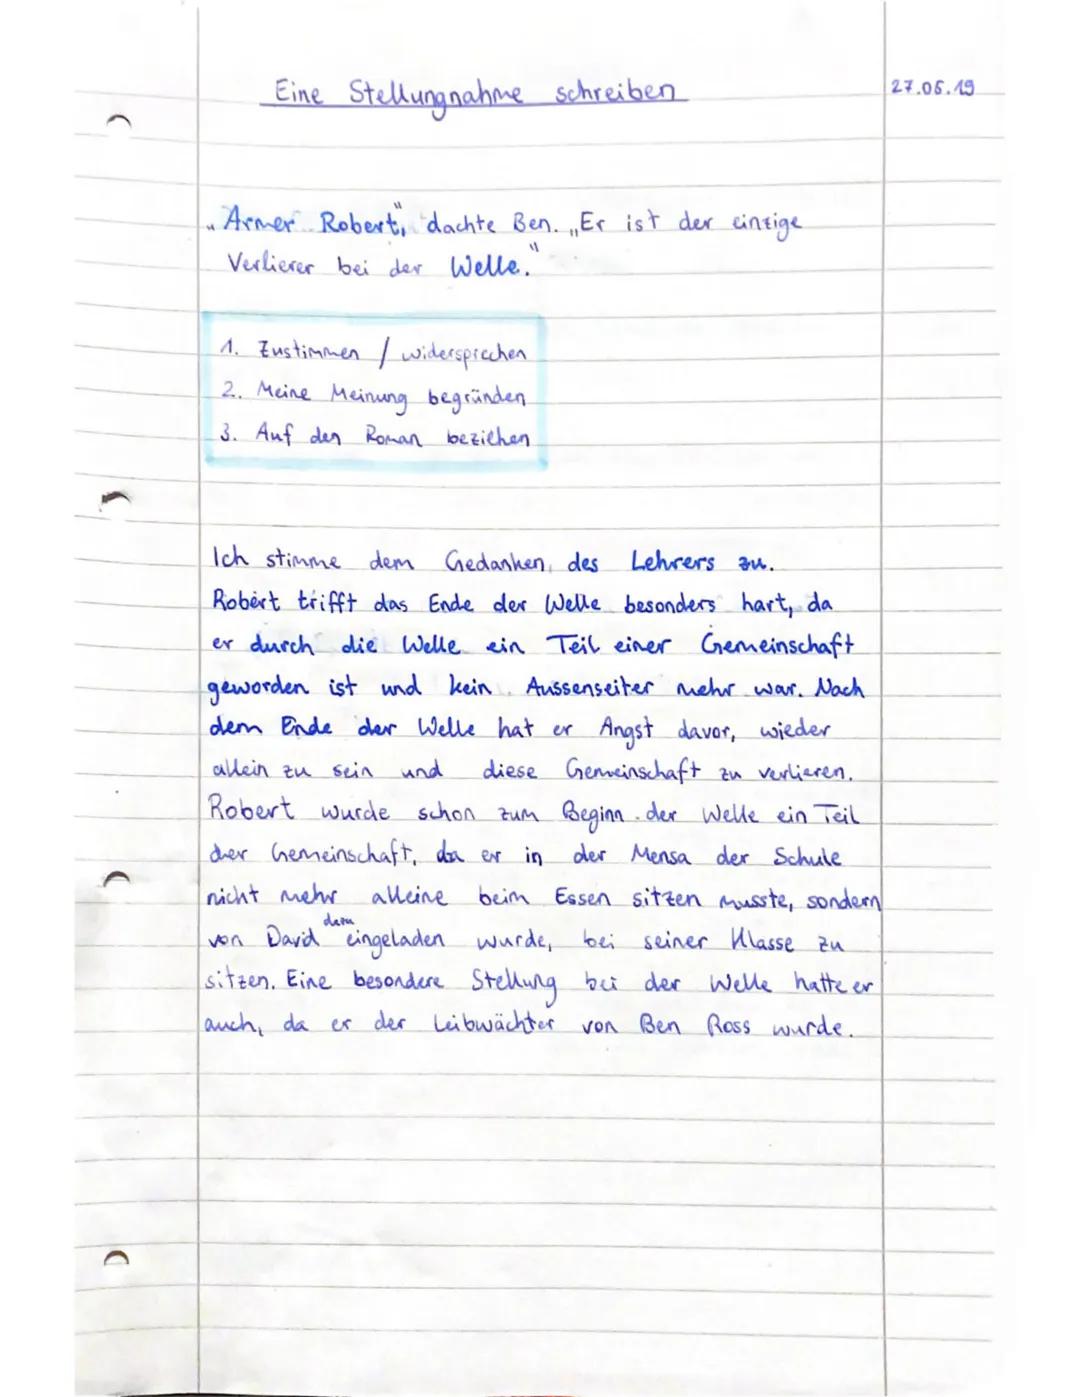 Eine Stellungnahme schreiben
27.05.19
"Armer Robert," dachte Ben. „Er ist der einzige
Verlierer bei der Welle."
1. Zustimmen / widersprechen
2. Meine Meinung begründen
3. Auf den Roman beziehen
Ich stimme dem Gedanken des Lehrers zu.
Robert trifft das Ende der Welle besonders hart, da
er durch die Welle ein Teil einer Gemeinschaft
geworden ist und kein Aussenseiter mehr war. Nach
dem Ende der Welle hat er Angst davor, wieder
allein zu sein und diese Gemeinschaft zu verlieren.
Robert wurde schon zum Beginn der Welle ein Teil
der Gemeinschaft, da er in der Mensa der Schule
nicht mehr alleine beim Essen sitzen musste, sondern
von David eingeladen wurde, bei seiner Klasse zu
sitzen. Eine besondere Stellung bei der Welle hatte er
auch, da er der Leibwächter von Ben Ross wurde.